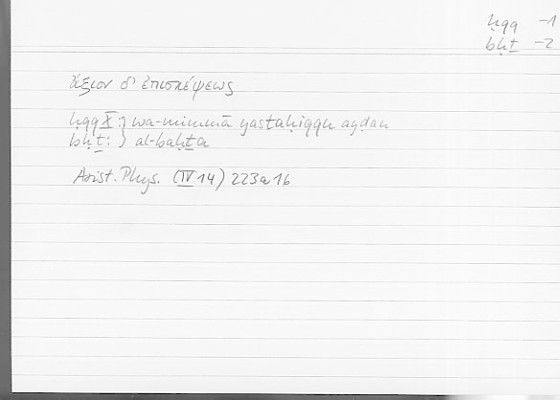 ḥqq -1
bḥṯ -2
ἄξιον δ' ἐπισκέψεως
ḥqq X:} wa-mimmā yastaḥiqqu ayḍan
bḥṯ:} al-baḥṯa
Arist. Phys. (IV 14) 223a16